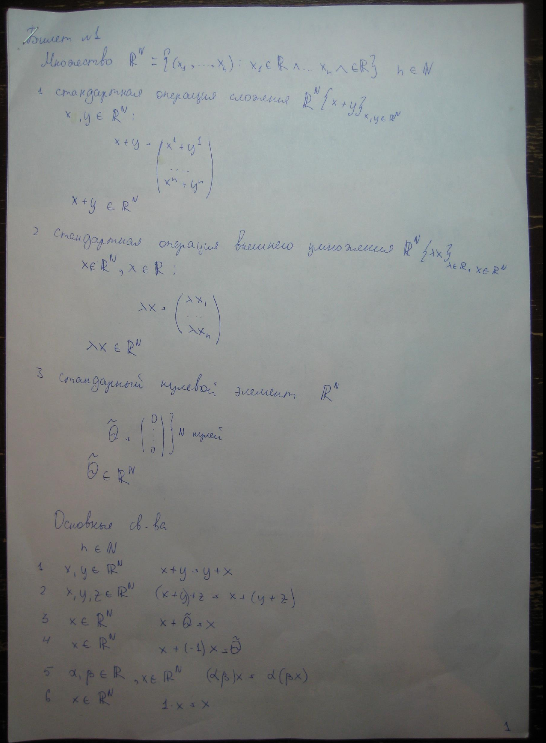 Билет №1
Множество ℝᴺ = {(x₁,...,xₙ): x₁∈ℝ ∧... xₙ ∧∈ℝ} n∈ℕ
1 стандартная операция сложения ℝᴺ {x+y}x,y∈ℝᴺ
x,y∈ℝᴺ:
x+y = (x¹+y¹
...
xⁿ+yⁿ)
x+y ∈ ℝᴺ
2 стандартная операция внешнего умножения ℝᴺ {λx}λ∈ℝ, x∈ℝᴺ
x∈ℝᴺ, λ∈ℝ:
λx = (λx₁
...
λxₙ)
λx ∈ ℝᴺ
3 стандарный нулевой элемент ℝᴺ
θ̃ = (0
⋮
0)} N нулей
θ̃ ∈ ℝᴺ
Основные св-ва
n∈ℕ
1 x,y∈ℝᴺ x+y=y+x
2 x,y,z∈ℝᴺ (x+y)+z = x+(y+z)
3 x∈ℝᴺ x+θ̃=x
4 x∈ℝᴺ x+(-1)x=θ̃
5 α,β∈ℝ, x∈ℝᴺ (αβ)x = α(βx)
6 x∈ℝᴺ 1·x=x
1